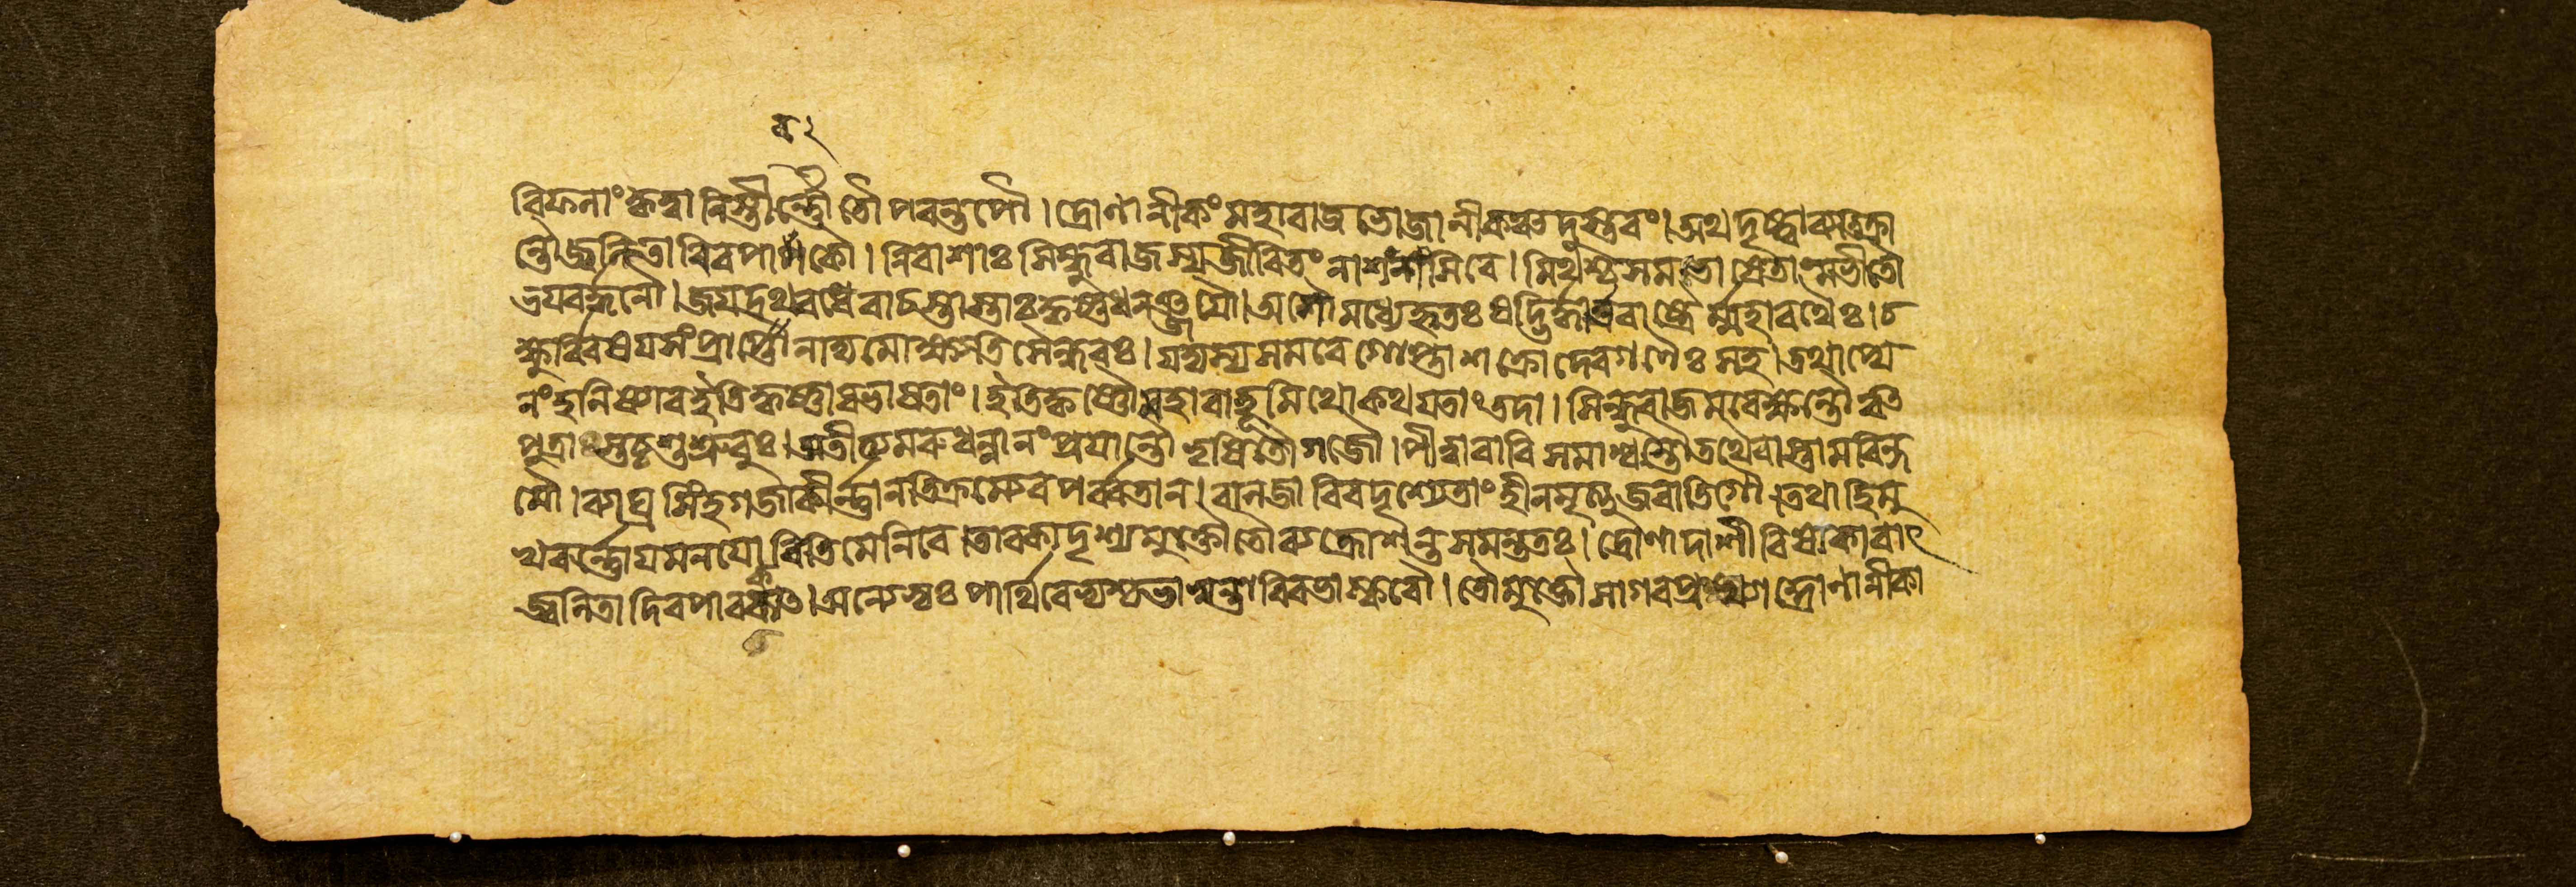 ৮২
বিফলাং কৃত্বা নিস্তীর্ণৌ তৌ পরন্তপৌ । দ্রোণানীকং মহারাজ ভোজানীকঞ্চ দুস্তরং । অথ দৃষ্ট্বা ব্যতিক্রা
ন্তৌ জ্বলিতাবিব পাবকৌ । নিরাশাঃ সিন্ধুরাজস্য জীবিতং নাশশংসিরে । মিথশ্চ সমভাষেতামভীতৌ
ভয়বর্দ্ধনৌ । জয়দ্রথবধে বাচস্তাস্তাঃ কৃষ্ণধনঞ্জয়ৌ । অসৌ মধ্যে কৃতঃ ষড্ভির্দ্ধার্ত্তরাষ্ট্রৈর্ম্মহারথৈঃ । চ
ক্ষুর্ব্বিষয়সংপ্রাপ্তৌ নাদ্য মোক্ষ্যতি সৈন্ধবঃ । যদ্যস্য সমরে গোপ্তা শক্রো দেবগণৈঃ সহ । তথাপ্যে
নং হনিষ্যাব ইতি কৃষ্ণাবভাষতাং । ইতি কৃষ্ণৌ মহাবাহূ মিথো কথয়তাং তদা । সিন্ধুরাজমবেক্ষন্তৌ তব
পুত্রাস্তচ্চ শুশ্রুবুঃ । অতীত্য মরুধন্বানং প্রয়ান্তৌ তৃষিতৌ গজৌ । পীত্বা বারি সমাশ্বস্তৌ তথৈবাস্তামরিন্দ
মৌ । ব্যাঘ্রসিংহগজাকীর্ণানতিক্রম্যেব পর্ব্বতান্ । বানিজাবিব দৃশ্যেতাং হীনমৃত্যুজরাতিগৌ । তথা হি মু
খবর্ণ্ণোয়মনয়োরিতি মেনিরে । তাবকা দৃশ্য মুক্তৌ তৌ ব্যক্রোশন্ত সমন্ততঃ । দ্রোণাদাশীবিষাকারাৎ
জ্বলিতাদিব পাবকাৎ । অন্যেভ্যঃ পার্থিবেভ্যশ্চ ভাস্বন্তাবিব ভাস্করৌ । তৌ মুক্তৌ সাগরপ্রখ্যা দ্রোণানীকা